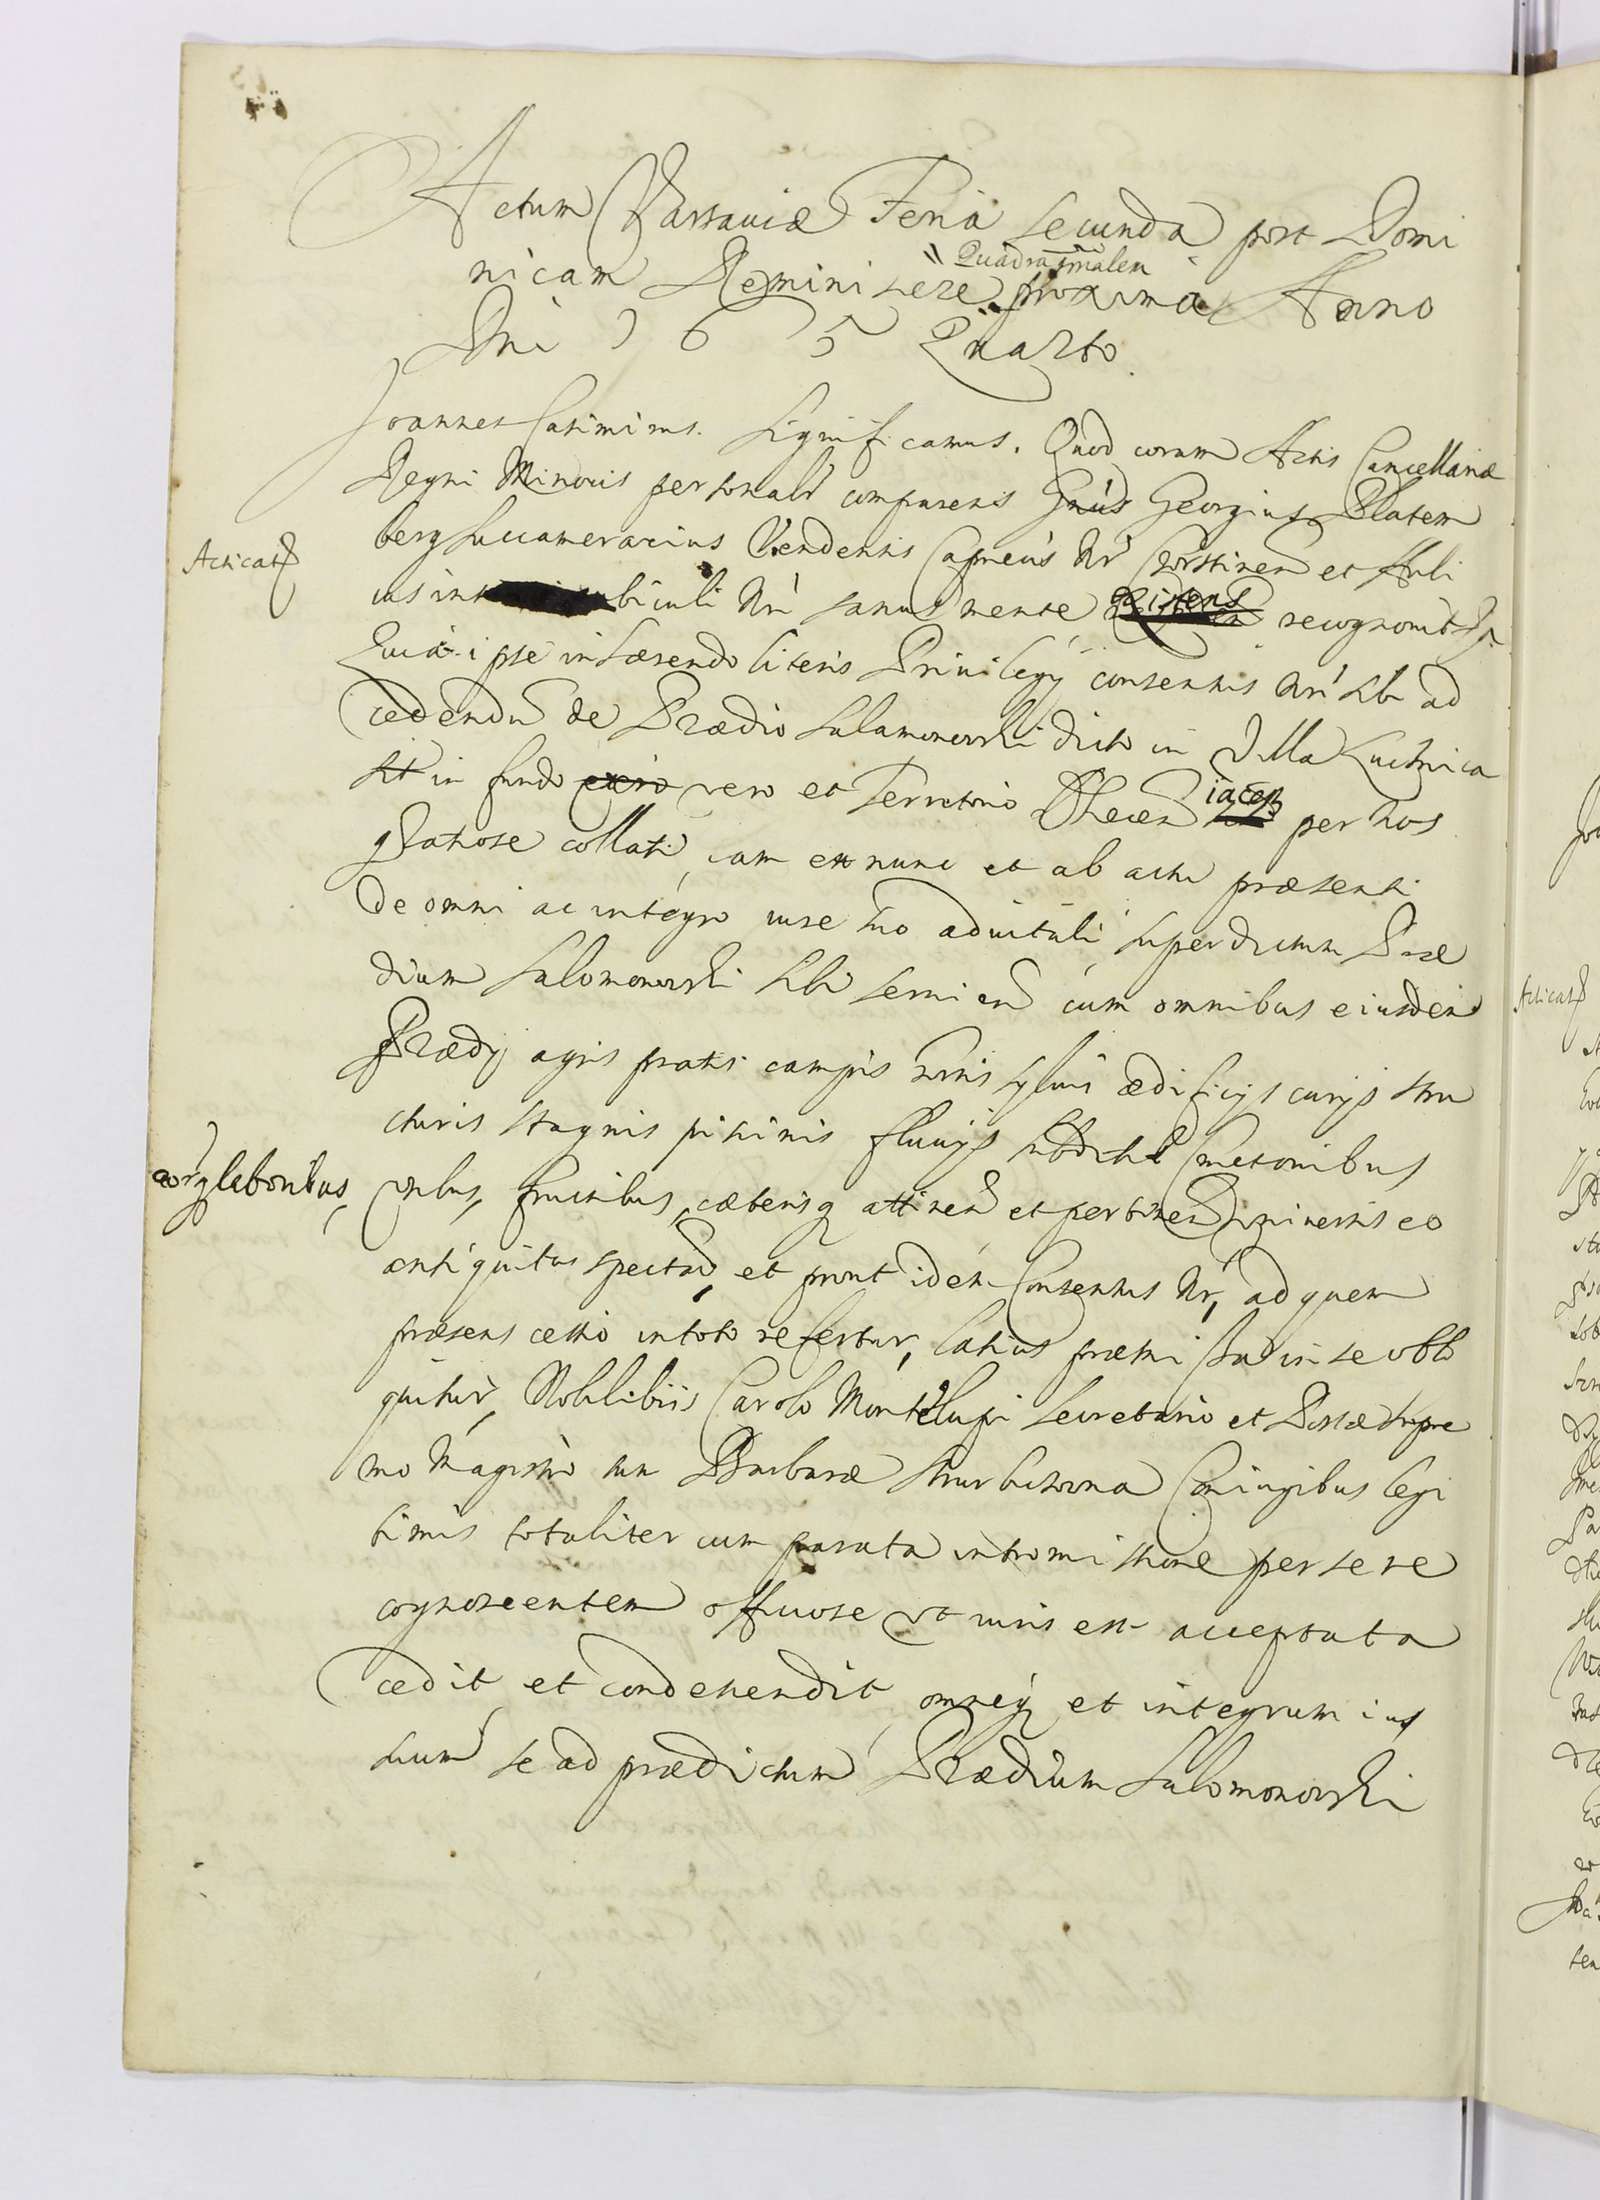 Actum Varsaviæ Feria secunda post Domi
nicam Reminiscere Quadragesimalem proxima Anno
Dni 165 Quarto.
Joannes Casimirus. Significamus. Quod coram Actis Cancellariæ
Regni Minoris personalr comparens Gnus Georgius Platem
berg Succamerarius Vendensis Capneus Nr et Auli
Acticat
cus biculi Nri sanus mente existens recognovit
Quia ipse in hærendo literis Privilegij consensus Nri sibi ad
cedendu de Prædio Salamonowski dicto in Villa Luchnica
sit in fundo vero et Territorio iacen per nos
gratiose collati, iam ex nunc et ab actu præsenti
de omni ac integro iure suo advitali super dictum Præ
dium Salomonowski sibi servien cum omnibus eiusdem
Prædij agris pratis campis sylvis ædificijs curijs stru
cturis stagnis piscinis fluvijs subditis Cmetonibus
eorq laboribus,
fructibus, cæterisq attinen et pertinen universis eo
antiquitus spectan, et prout idem Consensus Nr, ad quem
præsens cessio in toto refertur, latius præmissa in se ob lo
quitur, Nobilibus Carolo Montelupi Secretario et Postæ supre
mo Magistro tum Barbaræ Coniugibus legi
timis totaliter cum parata intromissione per se re
cognoscentem officiose ut iuris est acceptata
cedit et condescendit, omneq et integrum ius
suum se ad prædictum Prædium Salomonowski
Acticat